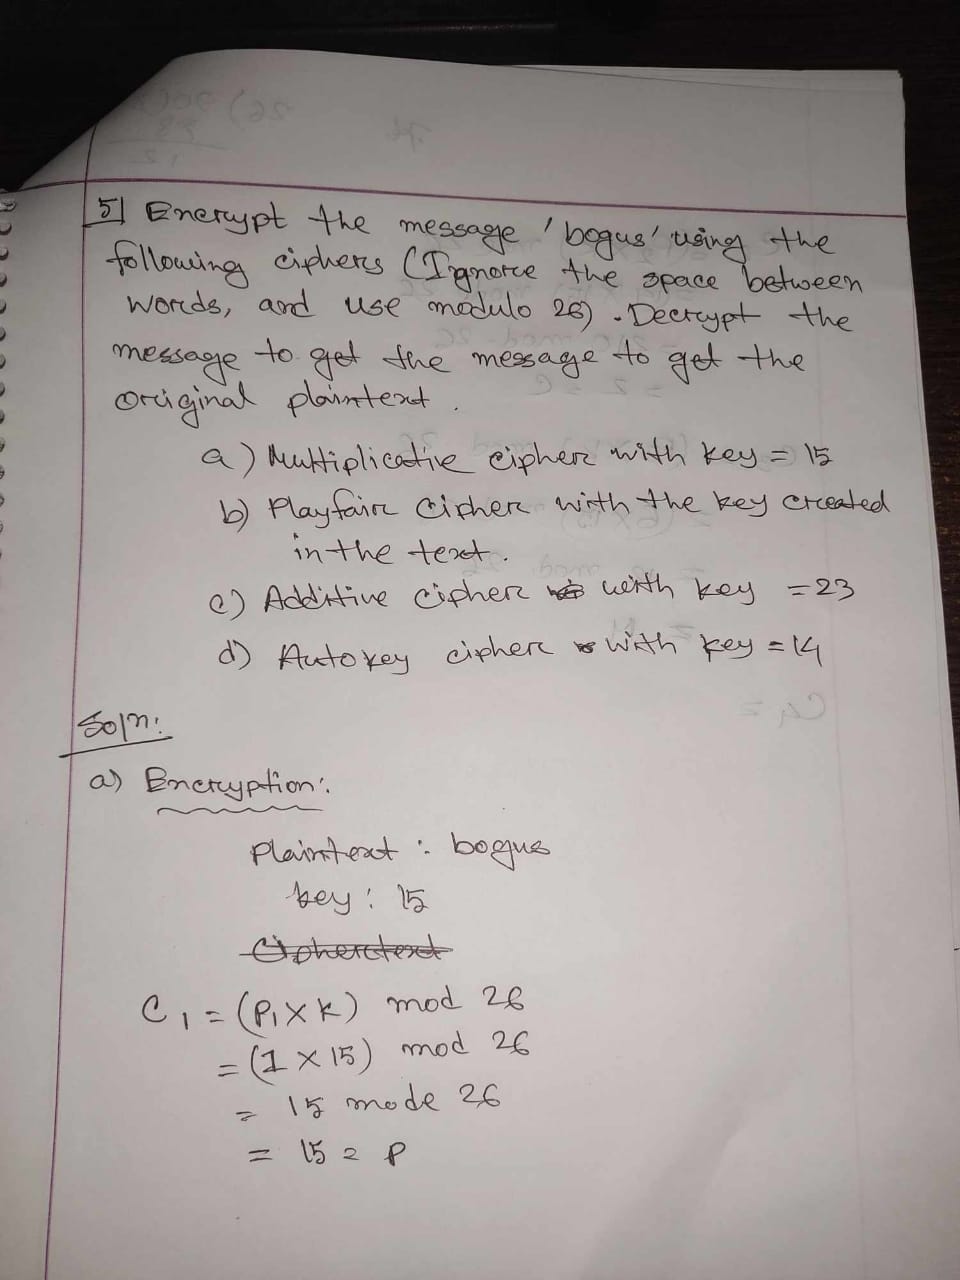 5] Encrypt the message 'bogus' using the
following ciphers (Ignore the space between
words, and use modulo 26). Decrypt the
message to get the message to get the
original plaintext.
a) Multiplicative cipher with key = 15
b) Playfair Cipher with the key created
in the text.
c) Additive cipher with key = 23
d) Autokey cipher with key = 14
Soln:
a) Encryption:
Plaintext : bogus
key : 15
Ciphertext
C1 = (P1 X K) mod 26
= (1 X 15) mod 26
= 15 mode 26
= 15 = P